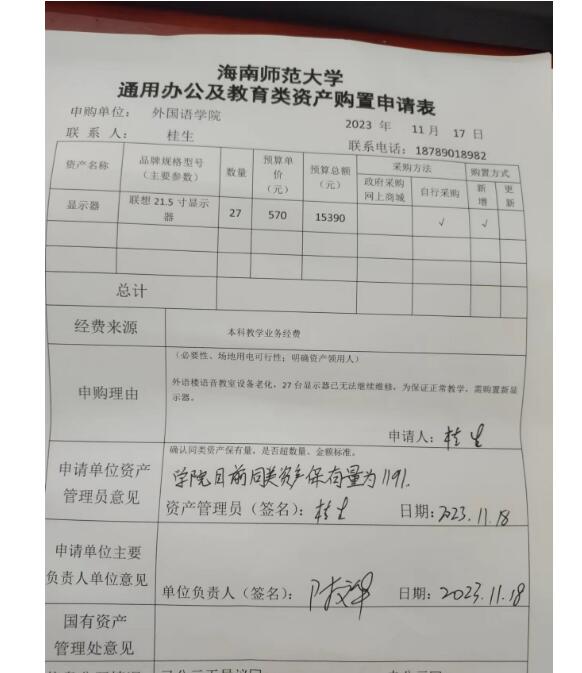 海南师范大学
通用办公及教育类资产购置申请表
申购单位： 外国语学院
2023 年 11 月 17 日
联 系 人： 桂生
联系电话：18789018982
资产名称 品牌规格型号（主要参数） 数量 预算单价（元） 预算总额（元） 采购方法 购置方式
政府采购网上商城 自行采购 新增 更新
显示器 联想 21.5 寸显示器 27 570 15390 √ √
总计
经费来源 本科教学业务经费
（必要性、场地用电可行性；明确资产领用人）
申购理由
外语楼语音教室设备老化，27 台显示器已无法继续维修，为保证正常教学，需购置新显
示器。
申请人：桂生
确认同类资产保有量，是否超数量、金额标准。
申请单位资产
管理员意见
学院目前同类资产保有量为1191.
资产管理员（签名）：桂生 日期：2023.11.18
申请单位主要
负责人单位意见
单位负责人（签名）： 日期：2023.11.18
国有资产
管理处意见